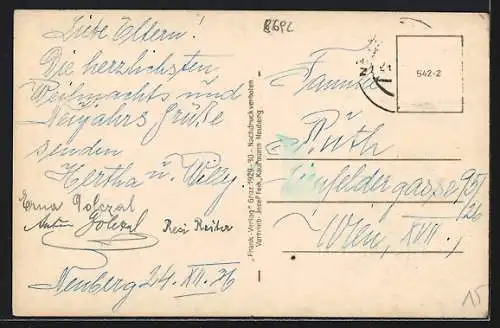 8692
Liebe Eltern!
Die herzlichsten
Weihnachts und
Neujahrs Grüße
senden
Hertha u. Willy.
Erna Golczal
Anton Golczal
Resi Reiter
Neuberg 24. XII. 36
"Frank-Verlag" Graz 1929-30 - Nachdruck verboten
Vertrieb: Josef Feik, Kaufmann Neuberg
542-2
Familie
Ruth
95/26
Wien, XVII.
15